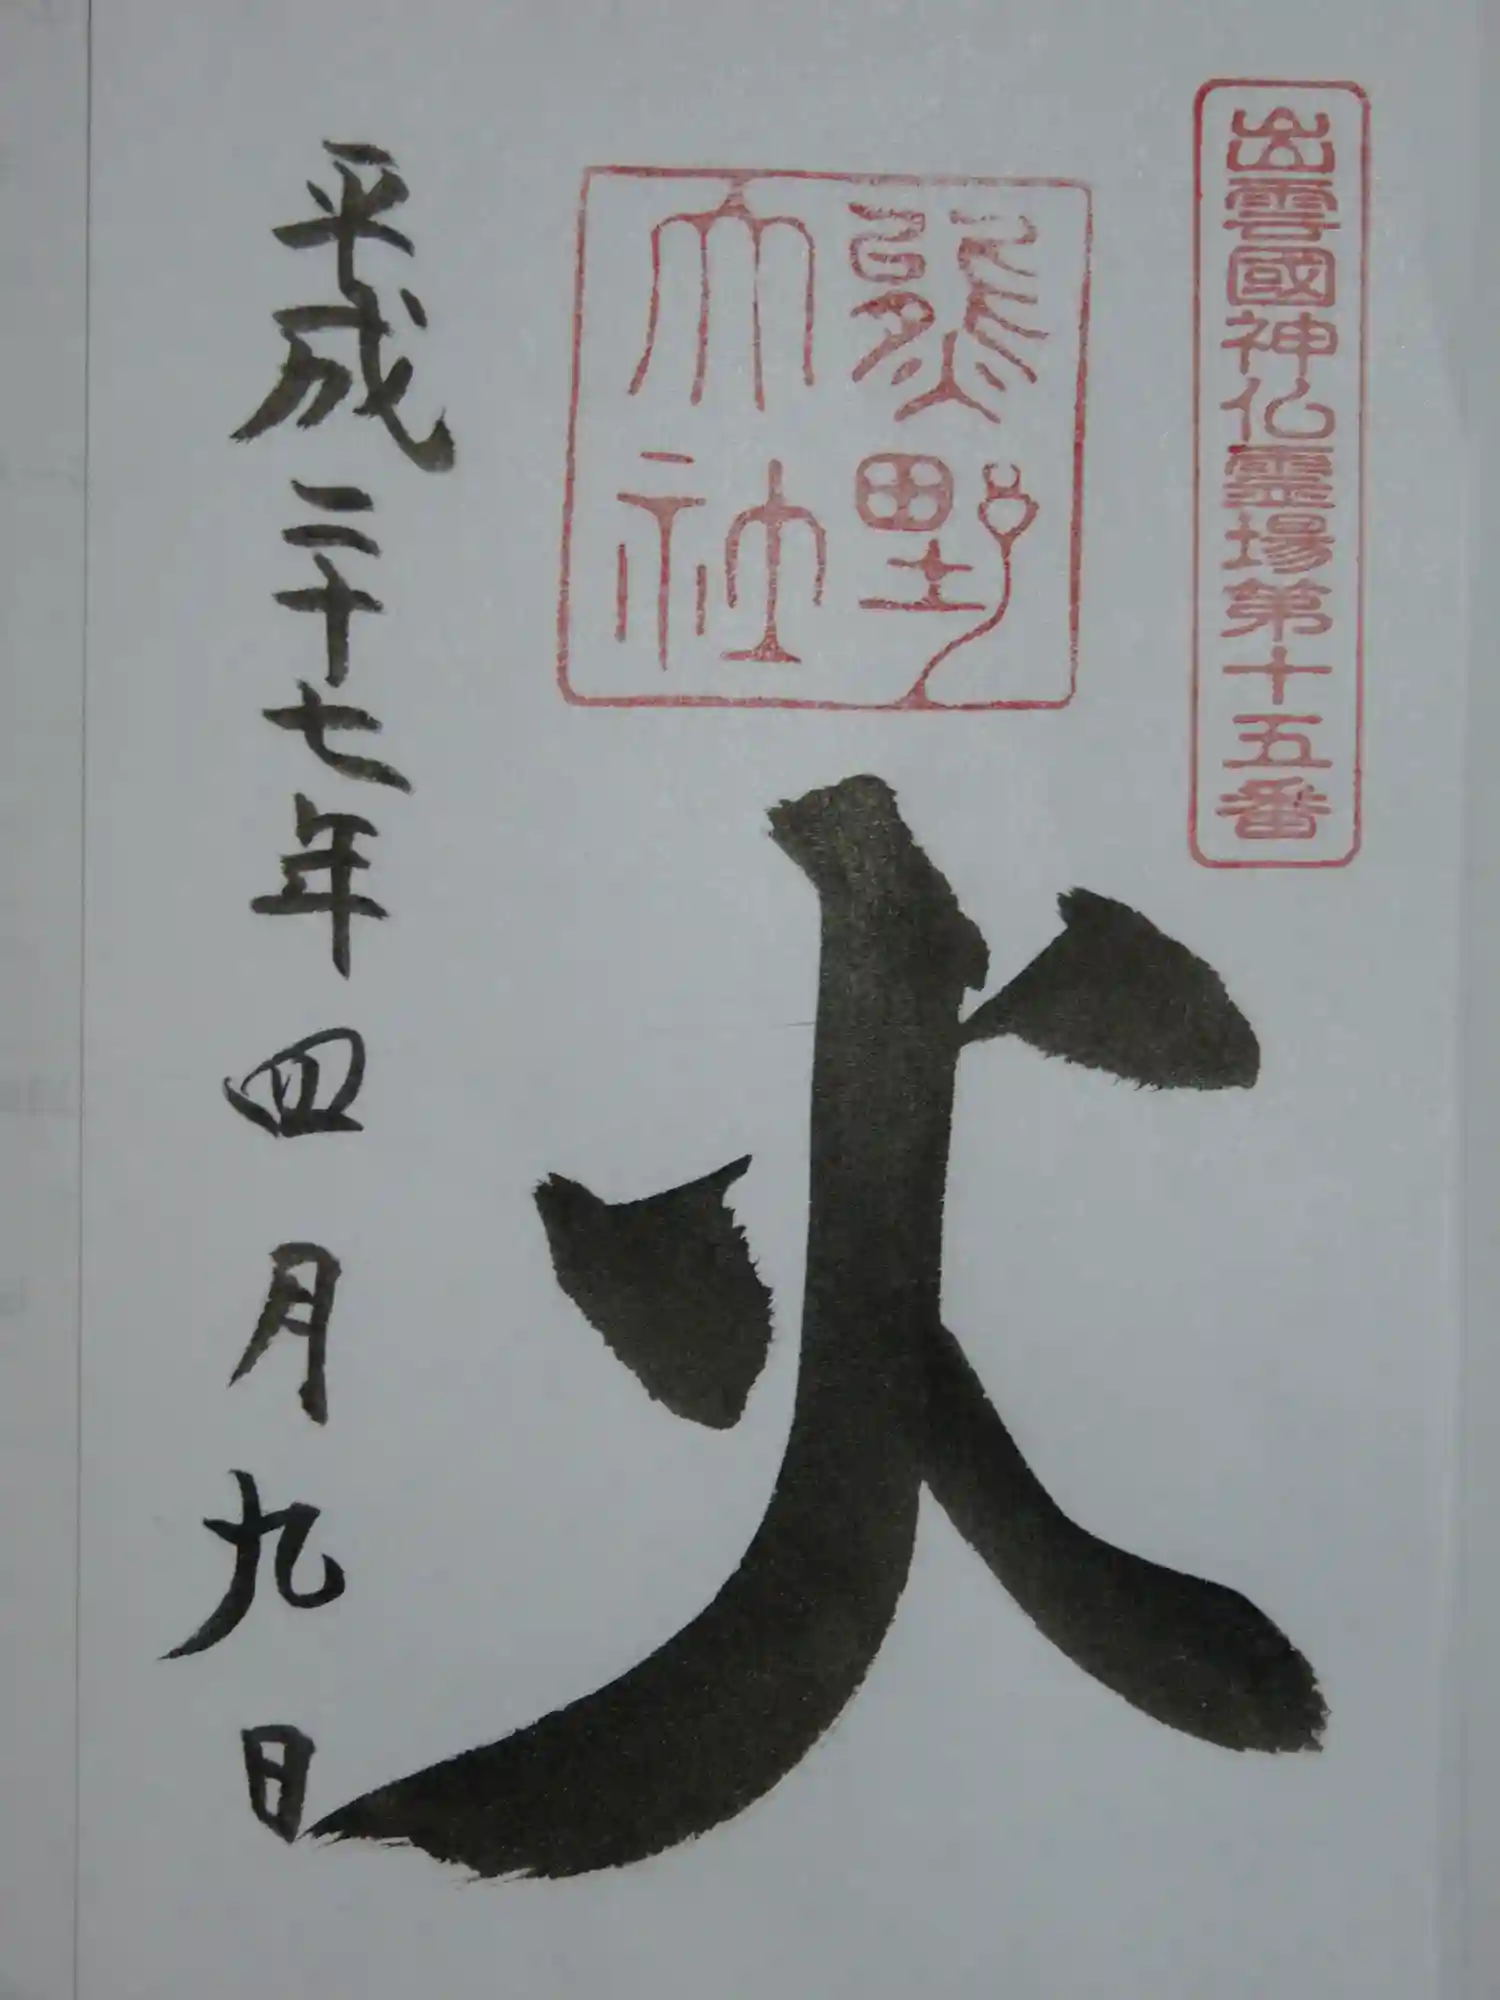 出雲國神仏霊場第十五番
熊野
大社
火
平成二十七年四月九日